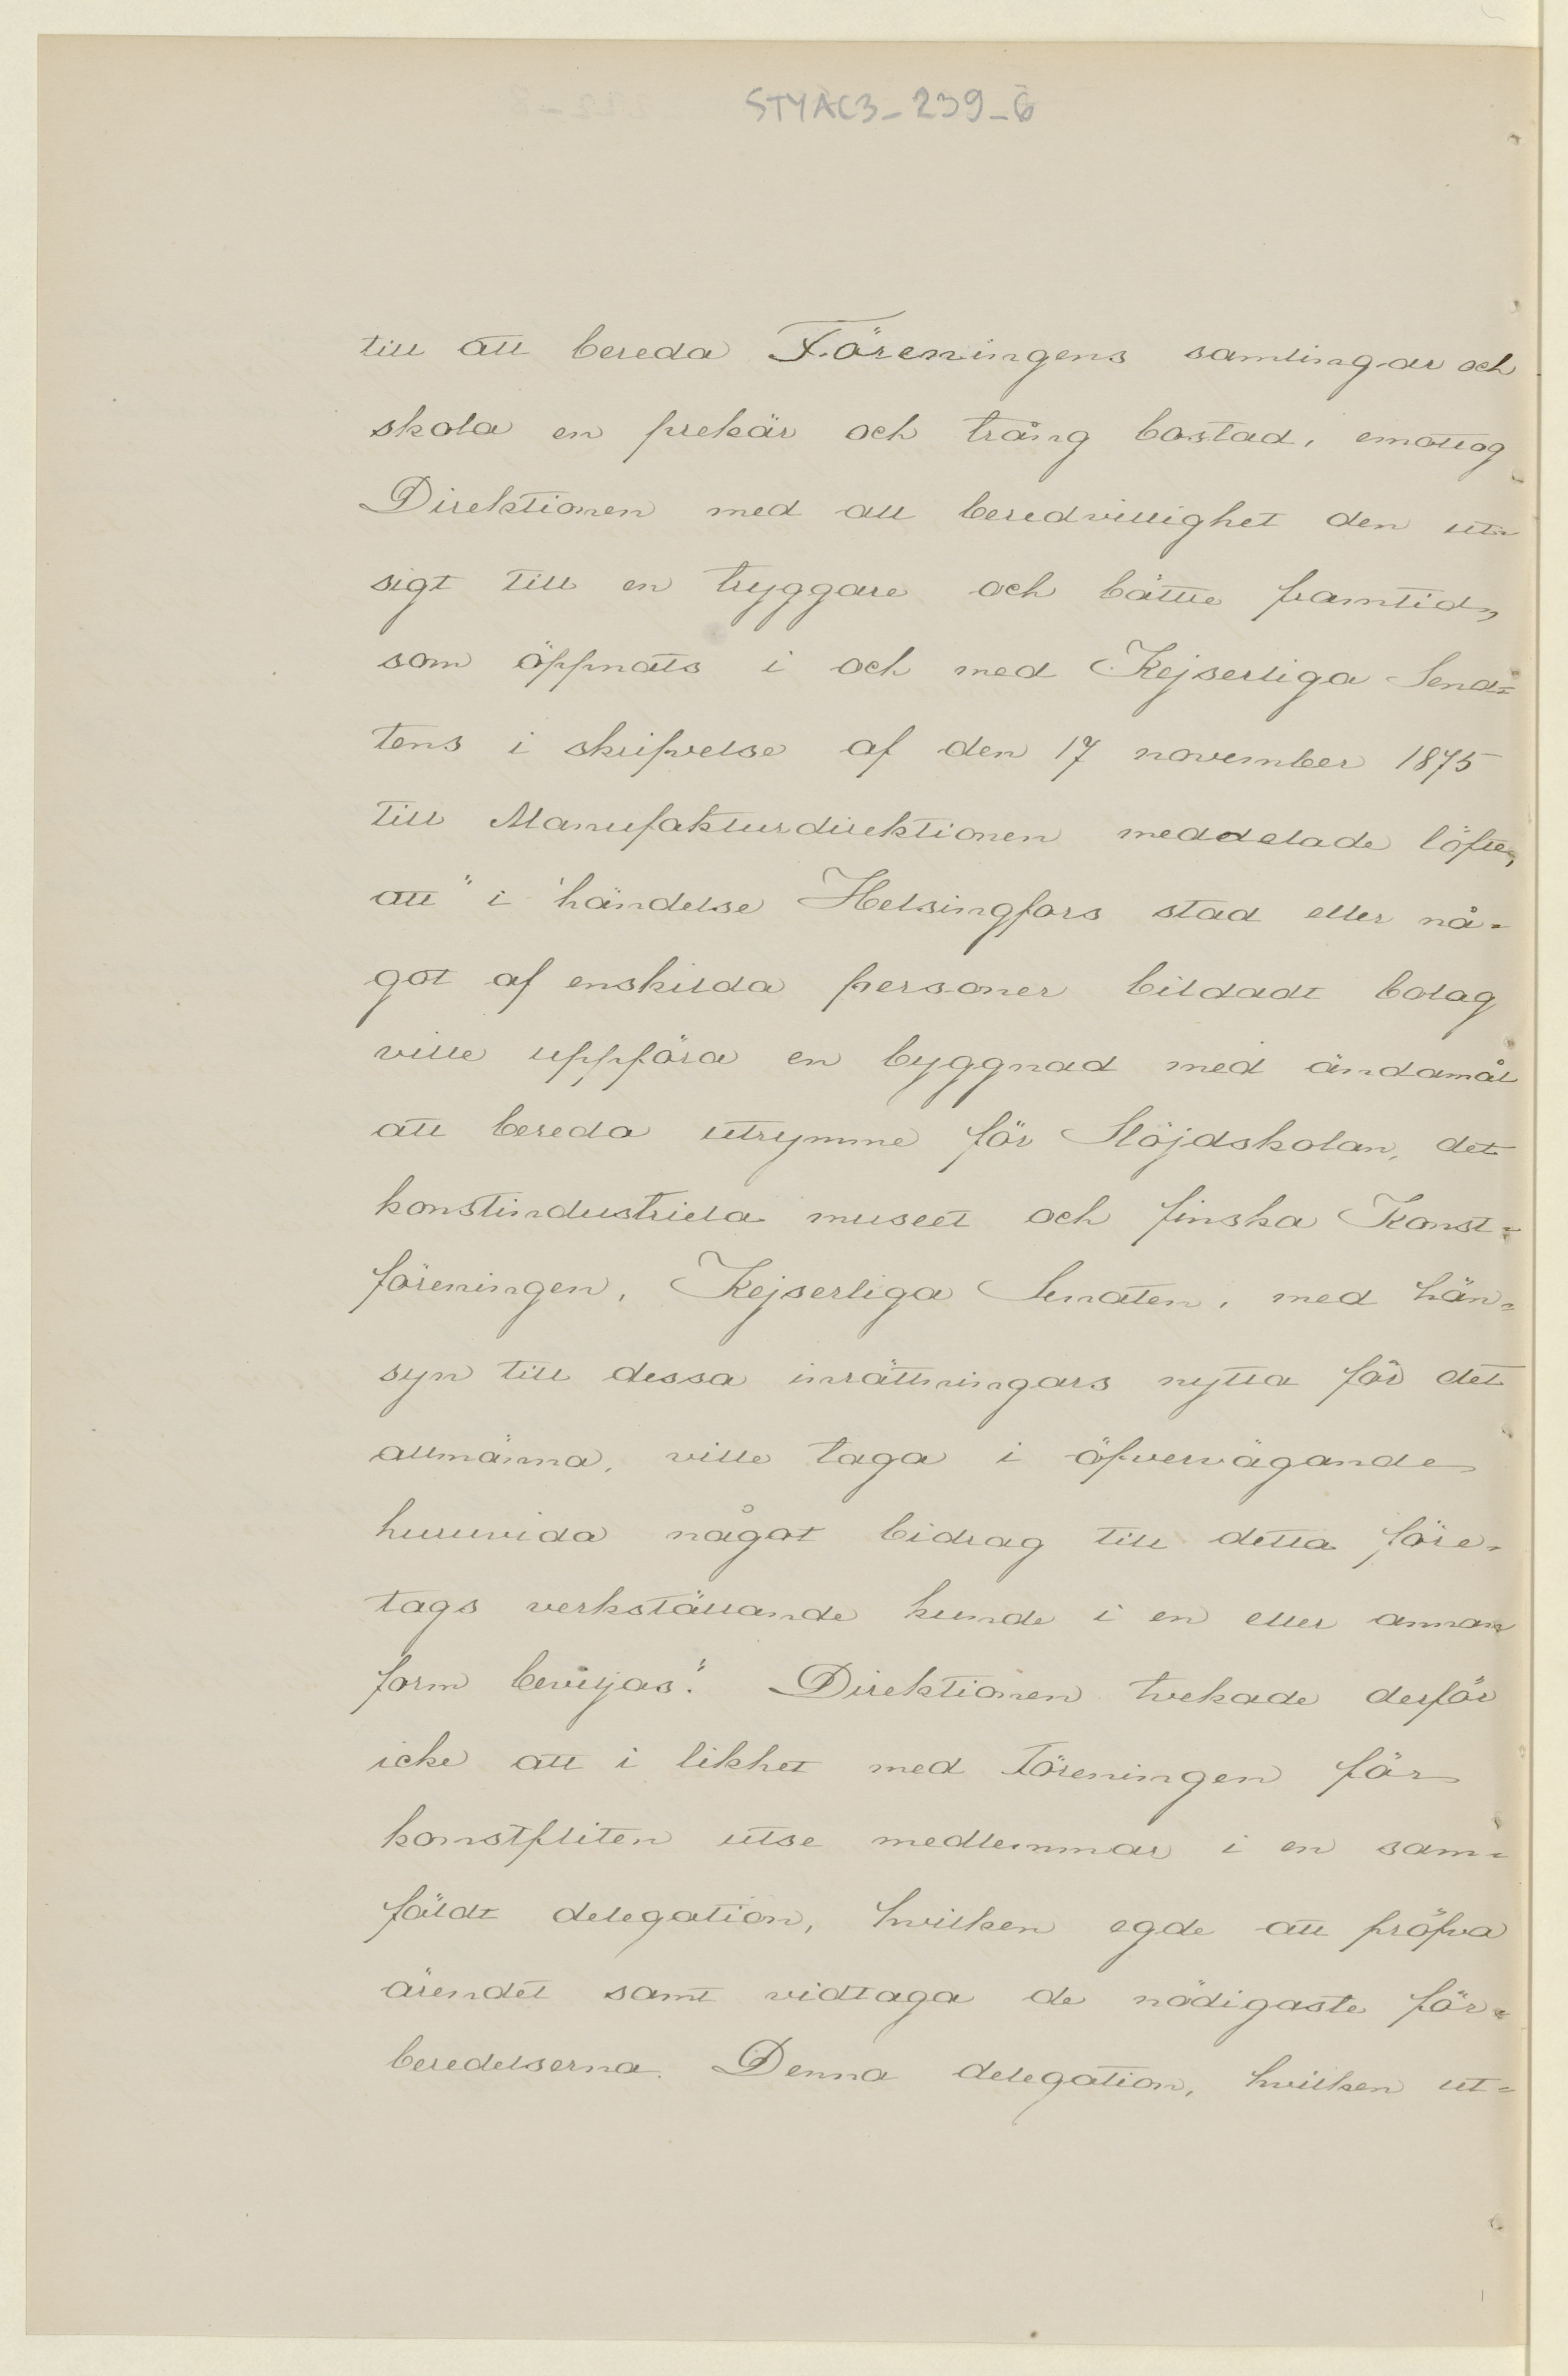 STYAC3_239_6
till att bereda Föreningens samlingar och
skola en prekär och trång bostad, emottog
Direktionen med all beredvillighet den ut-
sigt till en tryggare och bättre framtid,
som öppnats i och med Kejserliga Sena=
tens i skrifvelse af den 17 november 1875
till Manufakturdirektionen meddelade löfte,
att "i händelse Helsingfors stad eller nå=
got af enskilda personer bildadt bolag
ville uppföra en byggnad med ändamål
att bereda utrymme för Slöjdskolan, det
konstindustriela museet och finska Konst=
föreningen, Kejserliga Senaten, med hän=
syn till dessa inrättningars nytta för det
allmänna, ville taga i öfvervägande
huruvida något bidrag till detta före=
tags verkställande kunde i en eller annan
form beviljas." Direktionen tvekade derför
icke att i likhet med Föreningen för
konstfliten utse medlemmar i en sam=
fäldt delegation, hvilken egde att pröfva
ärendet samt vidtaga de nödigaste för=
beredelserna. Denna delegation, hvilken ut=